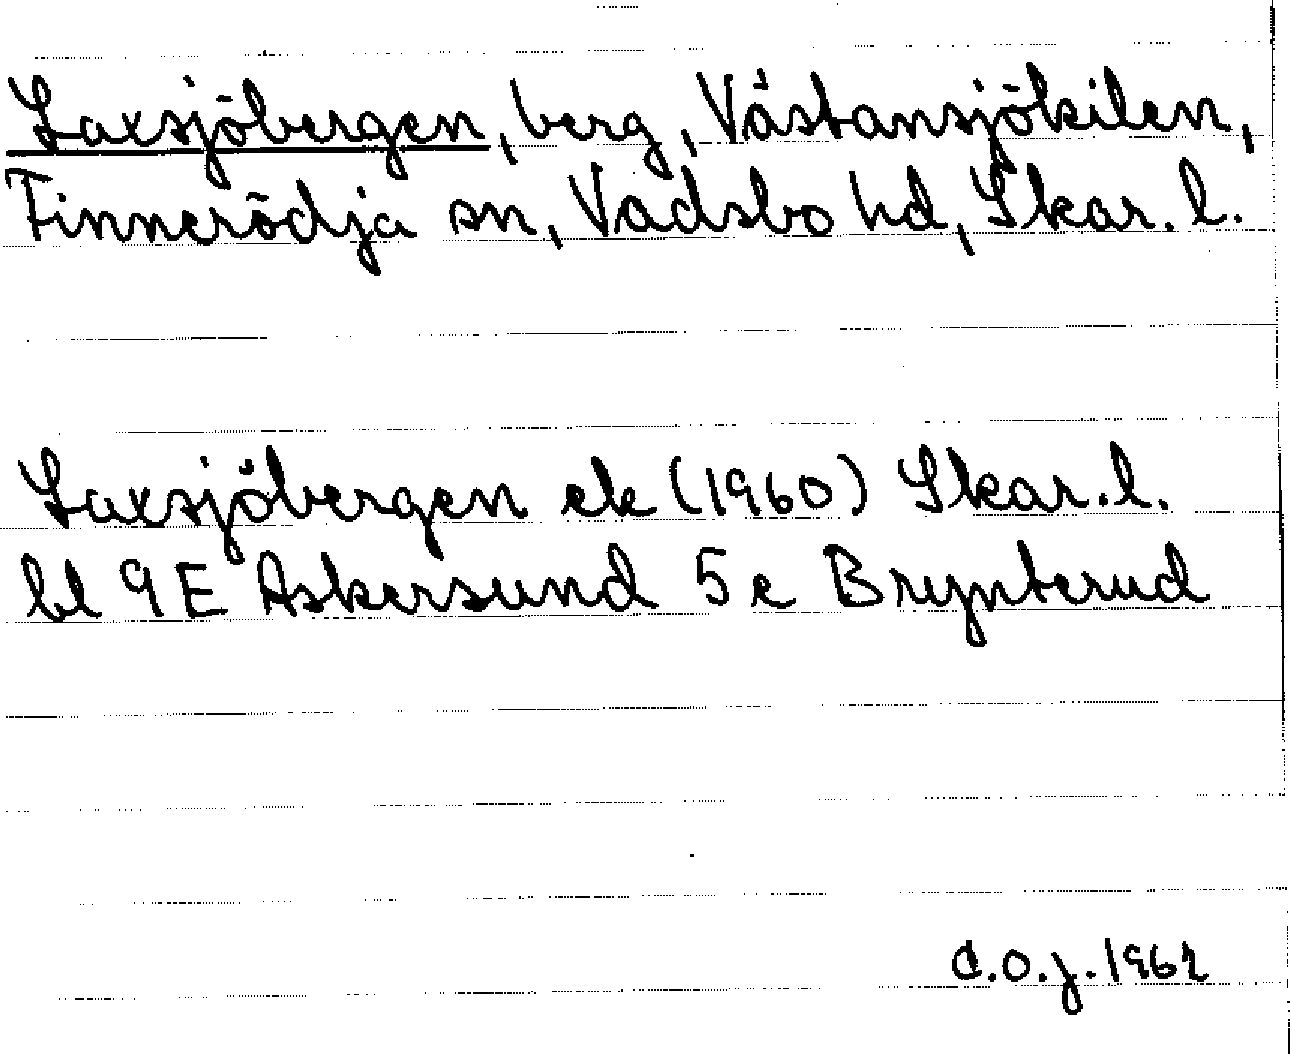 Laxsjöbergen, berg, Västansjökilen,
Finnerödja sn, Vadsbo hd, Skar. l.
Laxsjöbergen ek (1960) Skar. l.
bl 9E Askersund 5 c Brynterud
C.O.J. 1962